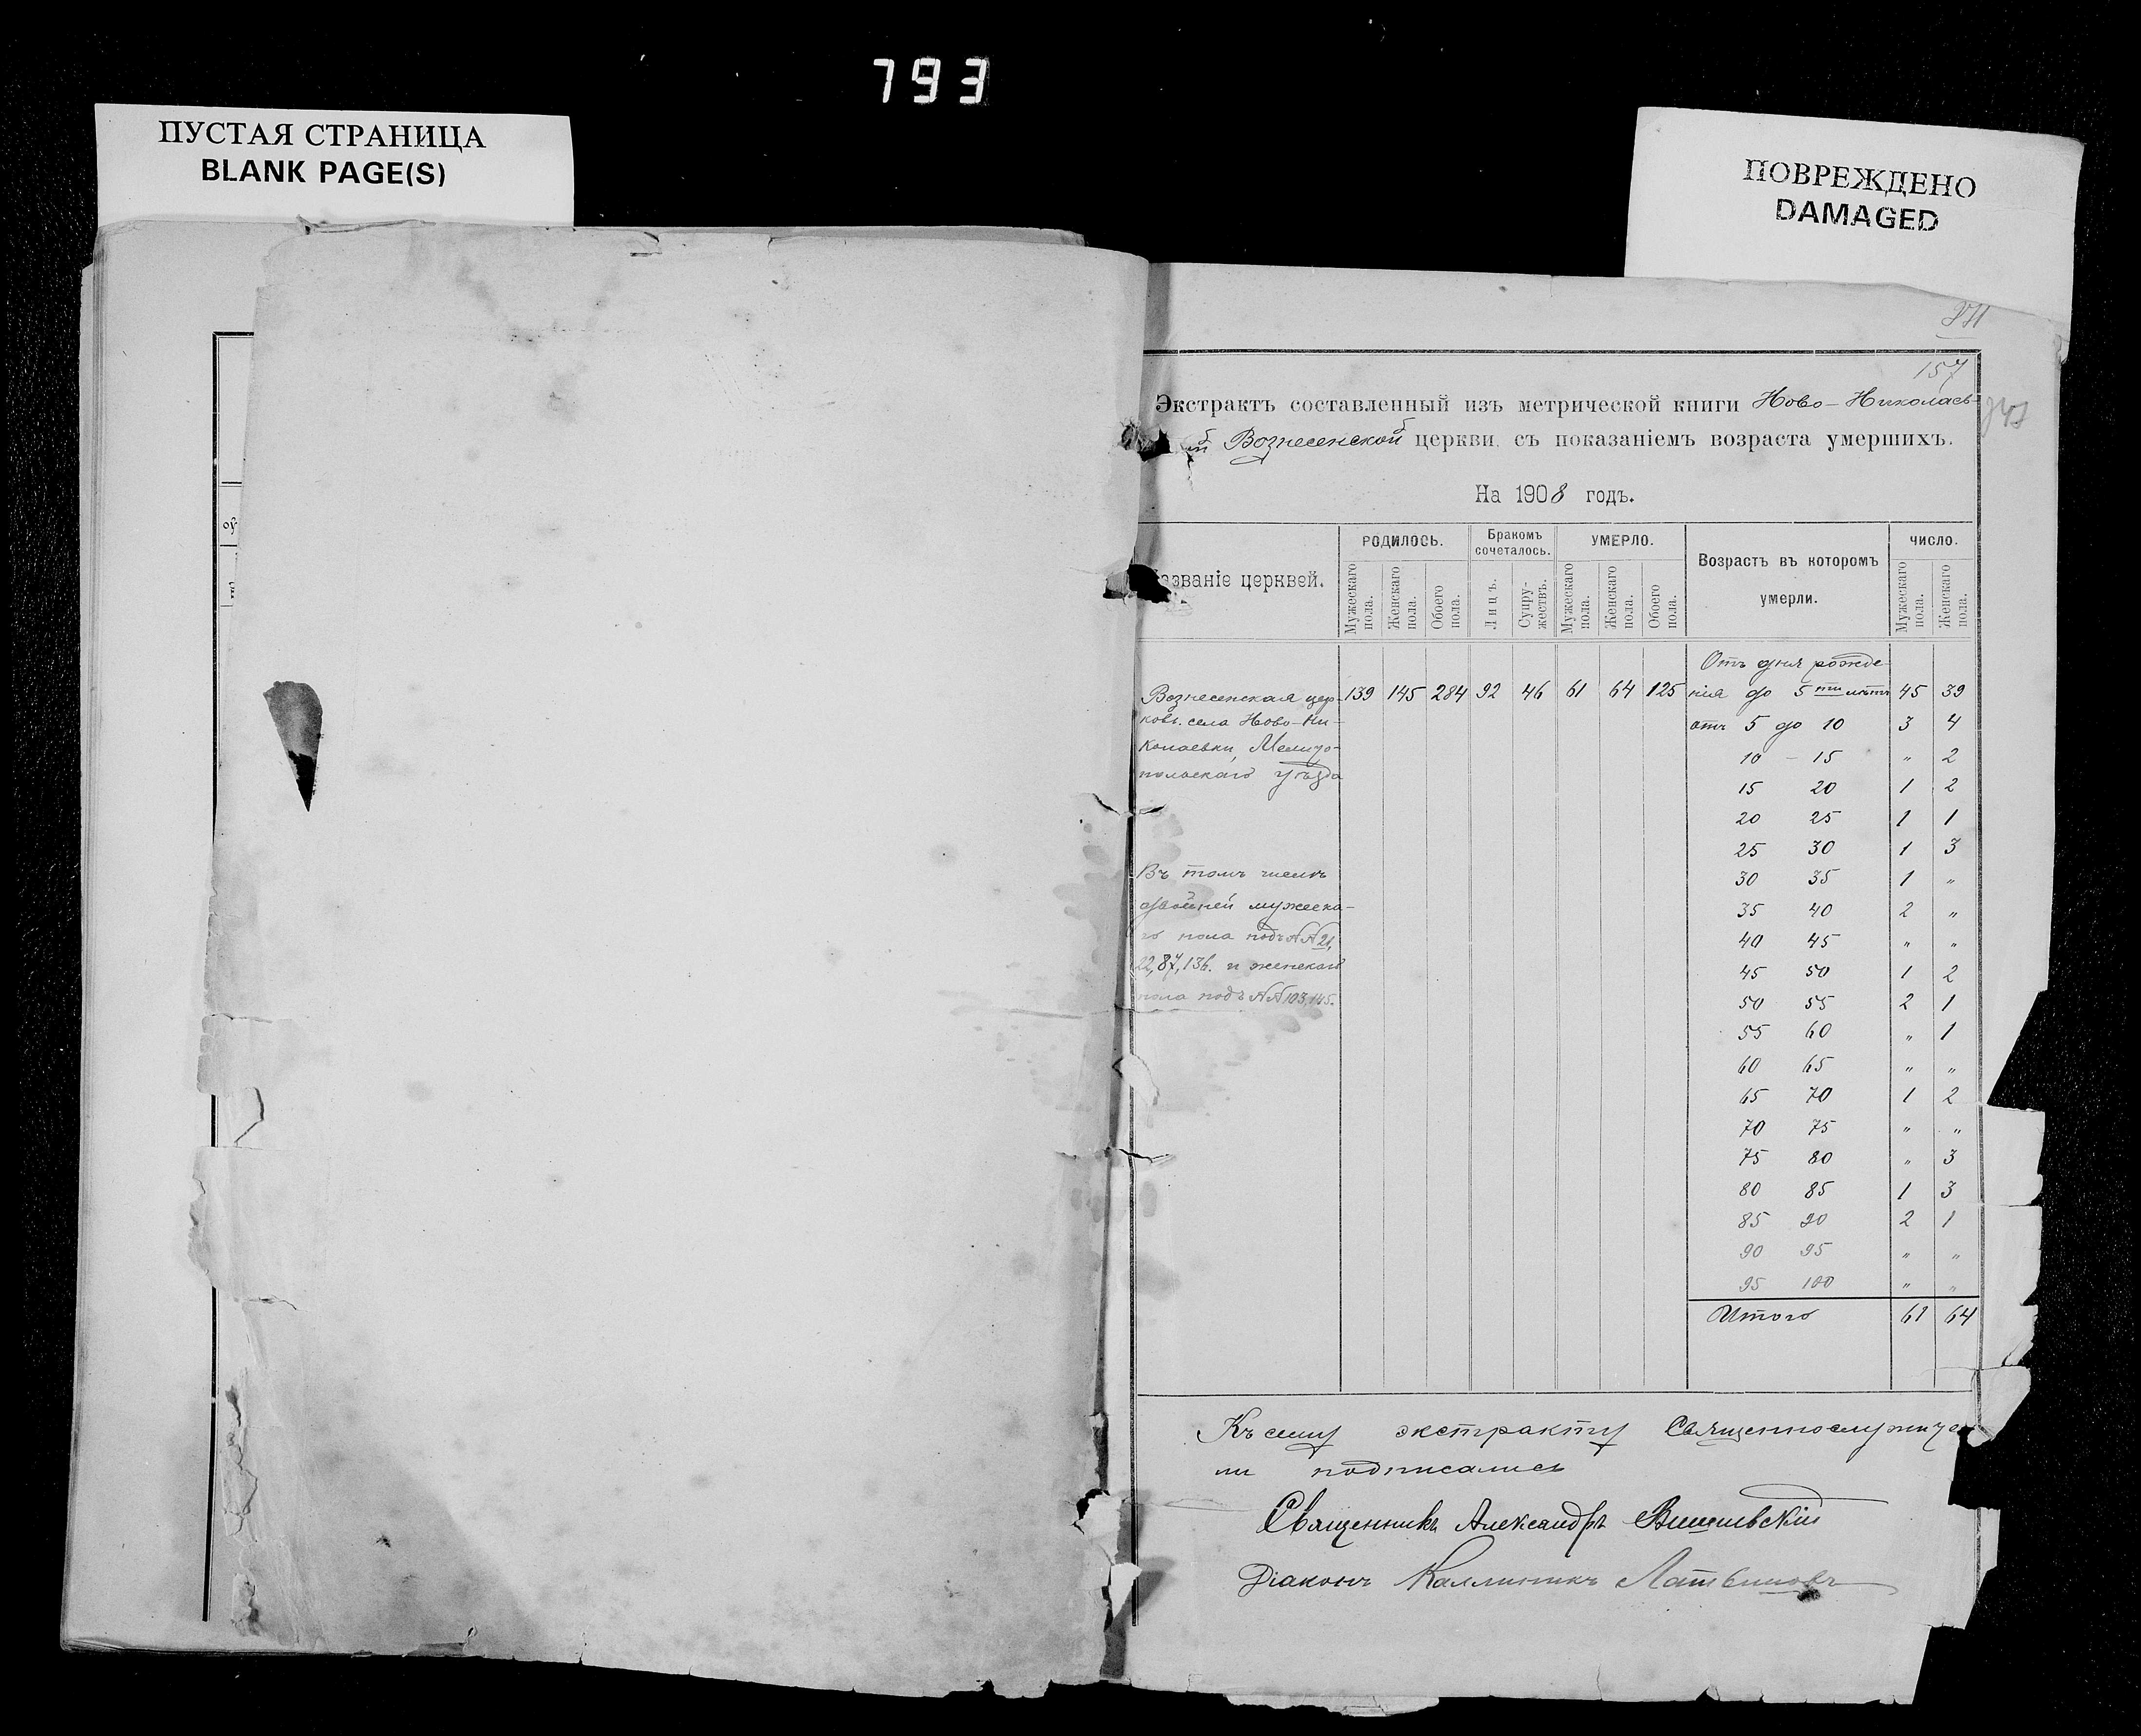 793
ПУСТАЯ СТРАНИЦА
BLANK PAGE(S)
ПОВРЕЖДЕНО
DAMAGED
157
Экстрактъ составленный изъ метрической книги Ново-Николаев-
Вознесенской церкви съ показаніемъ возраста умершихъ.
На 1908 годъ.
Названіе церквей.
РОДИЛОСЬ.
Бракомъ сочеталось.
УМЕРЛО.
Возрастъ въ которомъ умерли.
ЧИСЛО.
Мужескаго пола.
Женскаго пола.
Обоего пола.
Лицъ.
Супружествъ.
Мужескаго пола.
Женскаго пола.
Обоего пола.
Мужескаго пола.
Женскаго пола.
Отъ дня рожде-
Вознесенская цер- 139 145 284 92 46 61 64 125 нія до 5ти лѣтъ 45 39
ковь села Ново-Ни- отъ 5 до 10 3 4
колаевки, Мелито- 10 – 15 " 2
польскаго уѣзда 15 20 1 2
20 25 1 1
25 30 1 3
Въ томъ числѣ 30 35 1 "
двойней мужеска- 35 40 2 "
го пола подъ №№ 21, 40 45 " "
22, 87, 136. и женскаго 45 50 1 2
пола подъ №№ 103, 145. 50 55 2 1
55 60 " 1
60 65 " "
65 70 1 2
70 75 " "
75 80 " 3
80 85 1 3
85 90 2 1
90 95 " "
95 100 " "
Итого 61 64
Къ сему экстракту Священнослужите
ли подписались
Священникъ Александръ
Діаконъ Каллиникъ